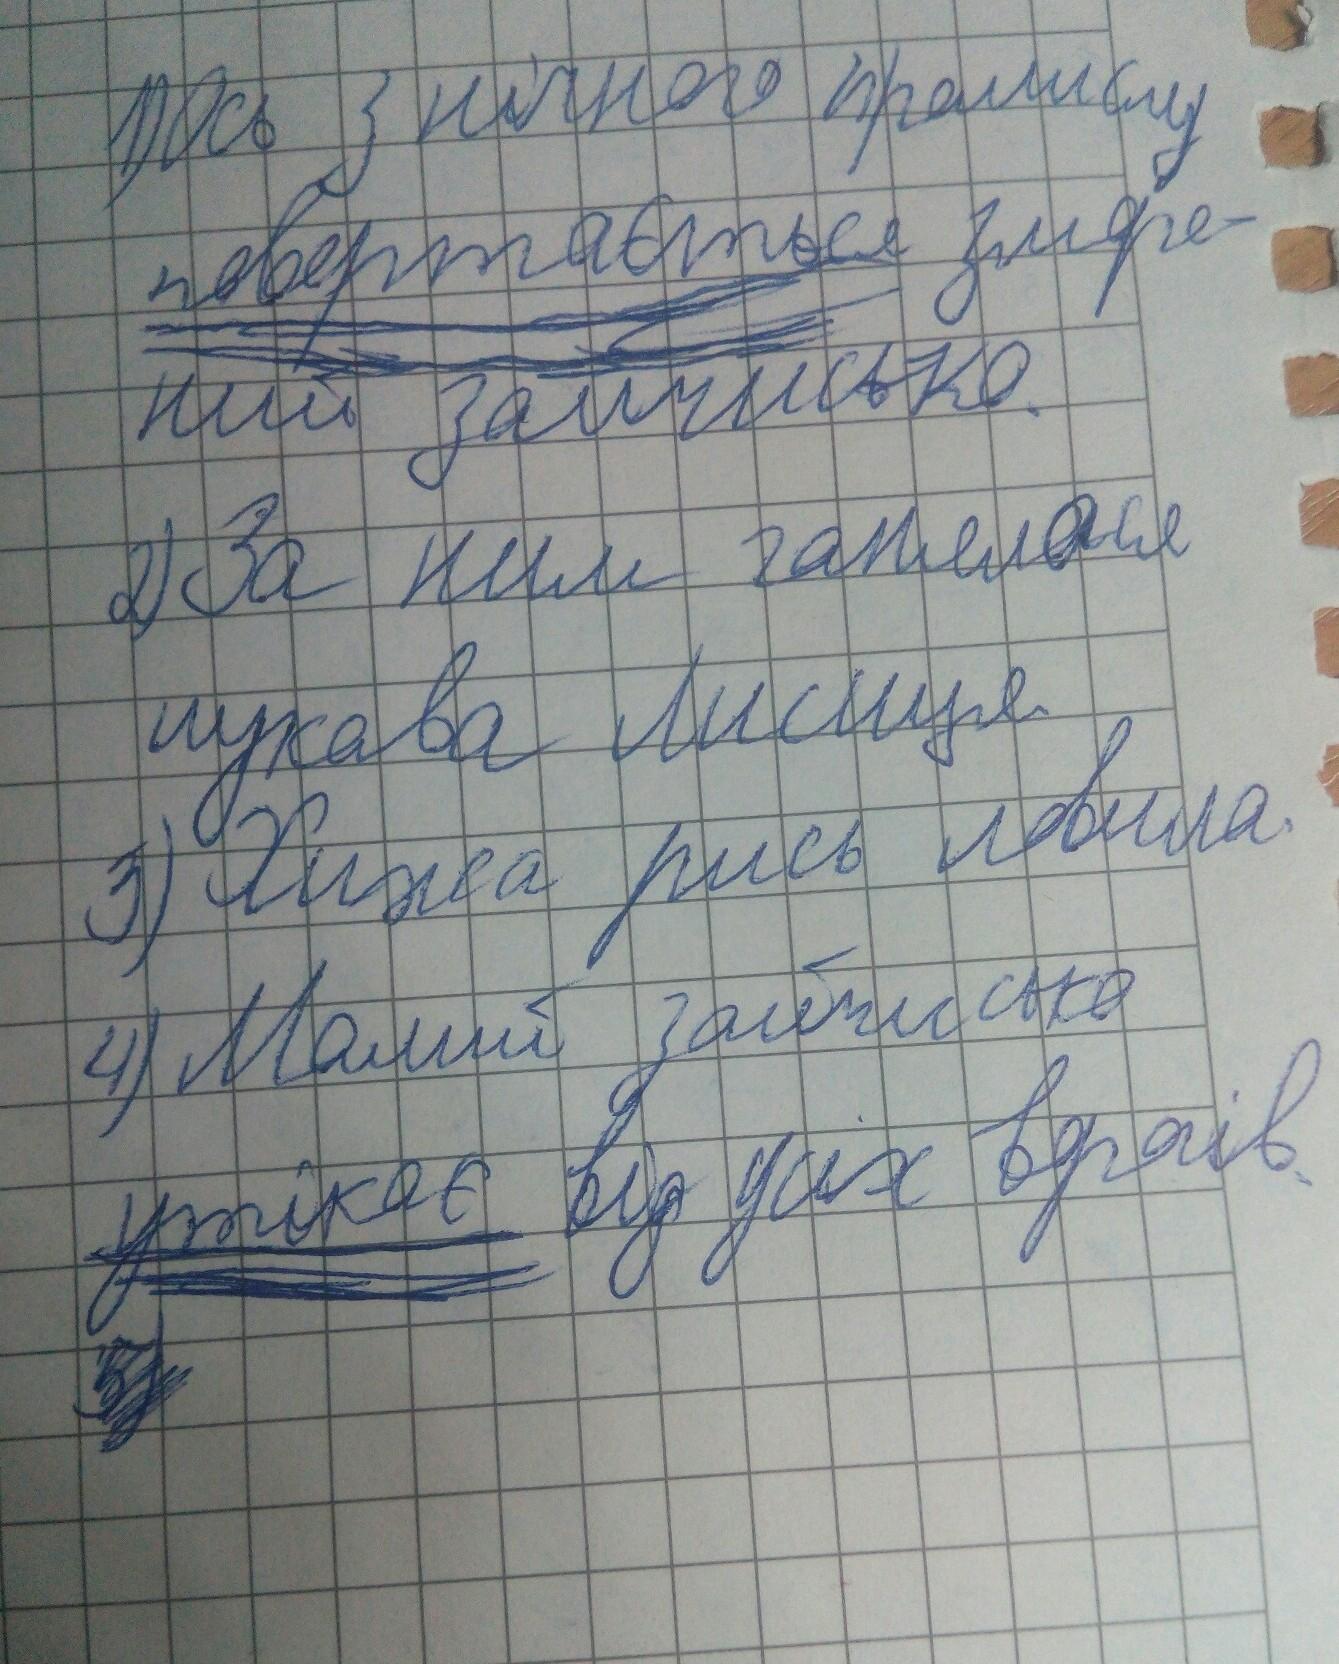 1) Ось з нічного промислу
повертається змаре-
ний зайчисько.
2) За ним ганялася
лукава лисиця.
3) Хижа рись ловила.
4) Малий зайчисько
утікає від усіх